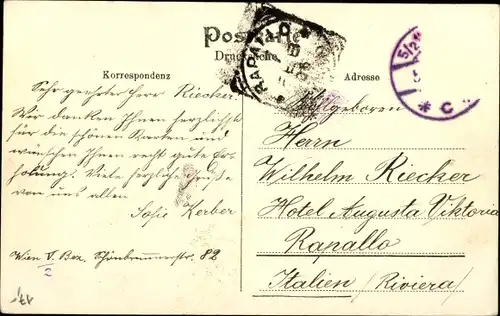 Postkarte
Drucksache.
Korrespondenz
Adresse
RAPALLO
5/2
* C
Sehr geehrter Herr Riecker.
Wir danken Ihnen herzlichst
für die schönen Karten und
wünschen Ihnen recht gute Er-
holung. Viele herzliche Grüße
von uns allen
Sofie Kerber
Wien V. Bez. Schönbrunnerstr. 82
2
Hochwohlgeboren
Herrn
Wilhelm Riecker
Hotel Augusta Viktoria
Rapallo
Italien (Riviera)